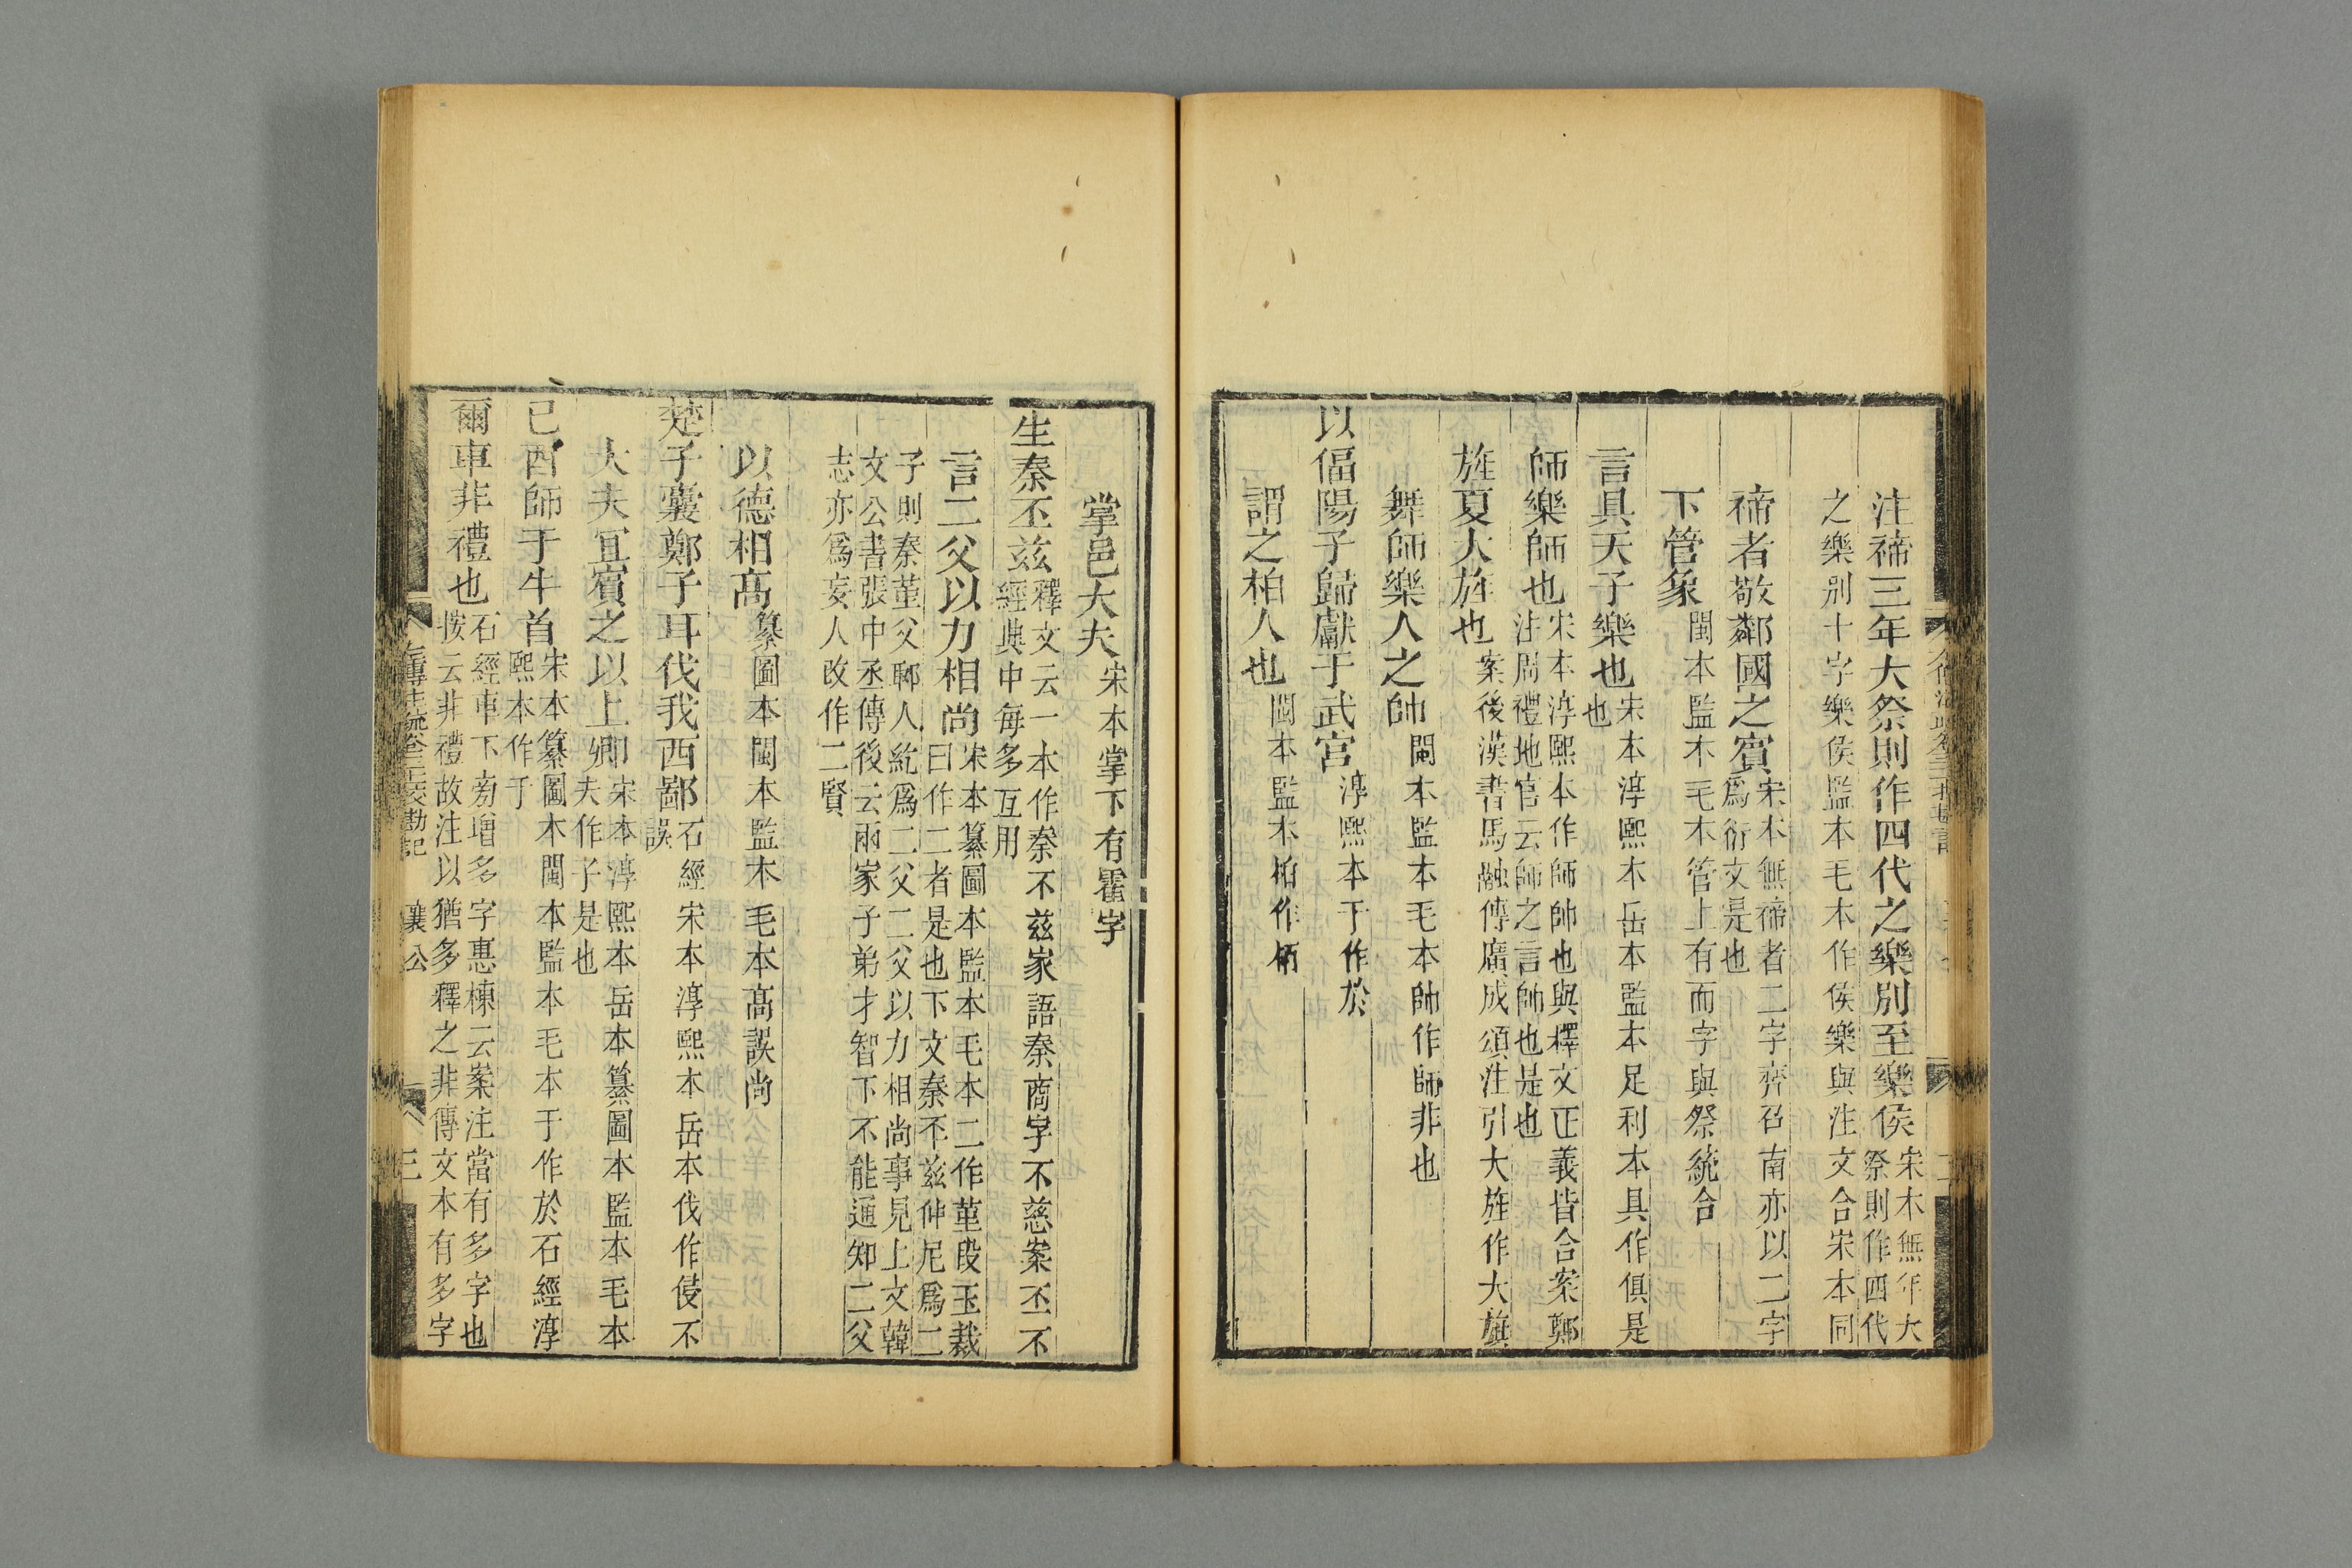 注禘三年大祭則作四代之樂別至樂侯宋本無年大祭則作四代
之樂別十字樂侯監本毛本作侯樂與注文合宋本同
禘者敬鄰國之賓宋本無禘者二字齊召南亦以二字爲衍文是也
下管象閩本監本毛本管上有而字與祭統合
言具天子樂也宋本淳熙本岳本監本足利本具作俱是也
師樂師也宋本淳熙本作師帥也與釋文正義皆合案鄭注周禮地官云師之言帥也是也
旌夏大旌也案後漢書馬融傳廣成頌注引大旌作大旗
舞師樂人之帥閩本監本毛本帥作師非也
以偪陽子歸獻于武宮淳熙本于作於
謂之柏人也閩本監本柏作栢
掌邑大夫宋本掌下有霍字
生秦丕茲釋文云一本作秦不茲家語秦商字不慈案丕不經典中每多互用
言二父以力相尚宋本纂圖本監本毛本二作堇段玉裁曰作二者是也下文秦丕茲仲尼爲二
子則秦堇父郰人紇爲二父二父以力相尚事見上文韓
文公書張中丞傳後云兩家子弟才智下不能通知二父
志亦爲妄人改作二賢
以德相高纂圖本閩本監本毛本高誤尚
楚子囊鄭子耳伐我西鄙石經宋本淳熙本岳本伐作侵不誤
大夫宜賓之以上卿宋本淳熙本岳本纂圖本監本毛本夫作子是也
己酉師于牛首宋本纂圖本閩本監本毛本于作於石經淳熙本作于
爾車非禮也石經車下旁增多字惠棟云案注當有多字也按云非禮故注以猶多釋之非傳文本有多字
襄公
三